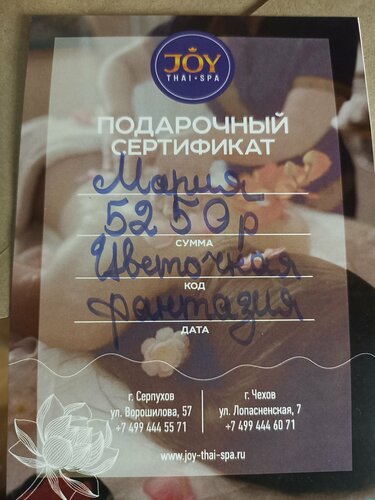 JOY
THAI • SPA
ПОДАРОЧНЫЙ
СЕРТИФИКАТ
Мария
5250р
СУММА
Цветочная
КОД
фантазия
ДАТА
г. Серпухов
ул. Ворошилова, 57
+7 499 444 55 71
г. Чехов
ул. Лопасненская, 7
+7 499 444 60 71
www.joy-thai-spa.ru